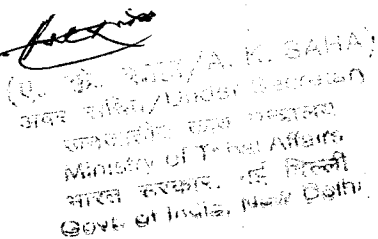 (ए. के. साहा/A. K. SAHA)
अवर सचिव/Under Secretary
जनजातीय कार्य मंत्रालय
Ministry of Tribal Affairs
भारत सरकार, नई दिल्ली
Govt. of India, New Delhi